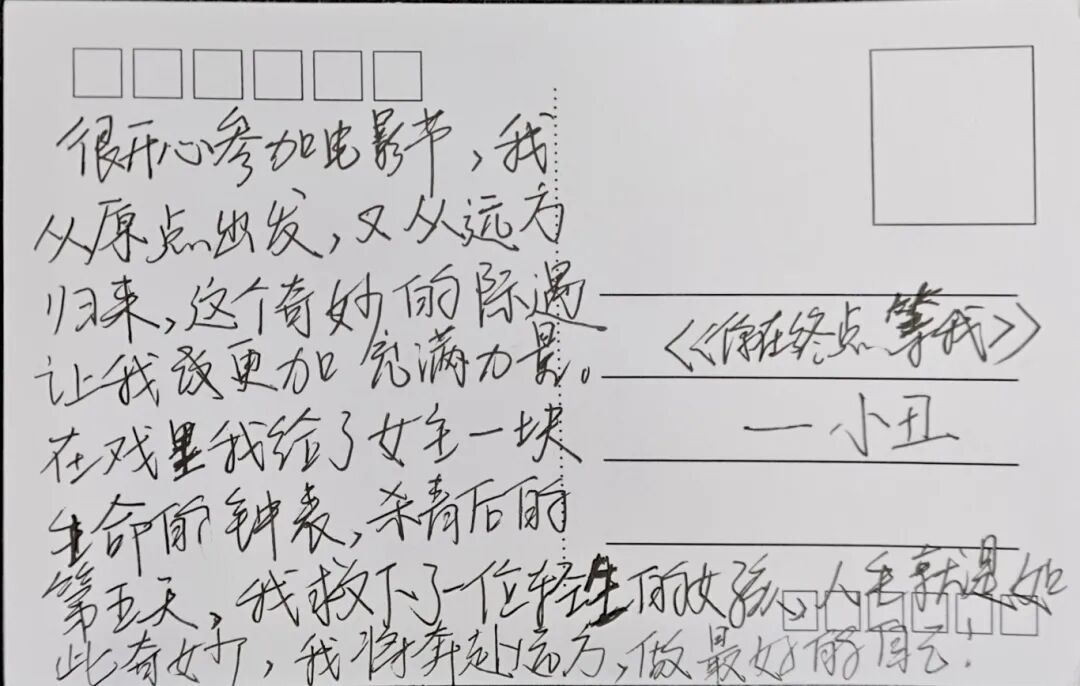 很开心参加电影节,我
从原点出发,又从远方
归来,这个奇妙的际遇
让我更加充满力量。
在戏里我给了女主一块
生命的钟表,杀青后的
第五天,我救下了一位轻生的女孩、人生就是如
此奇妙,我将奔赴远方,做最好的自己!
《你在终点等我》
—小丑